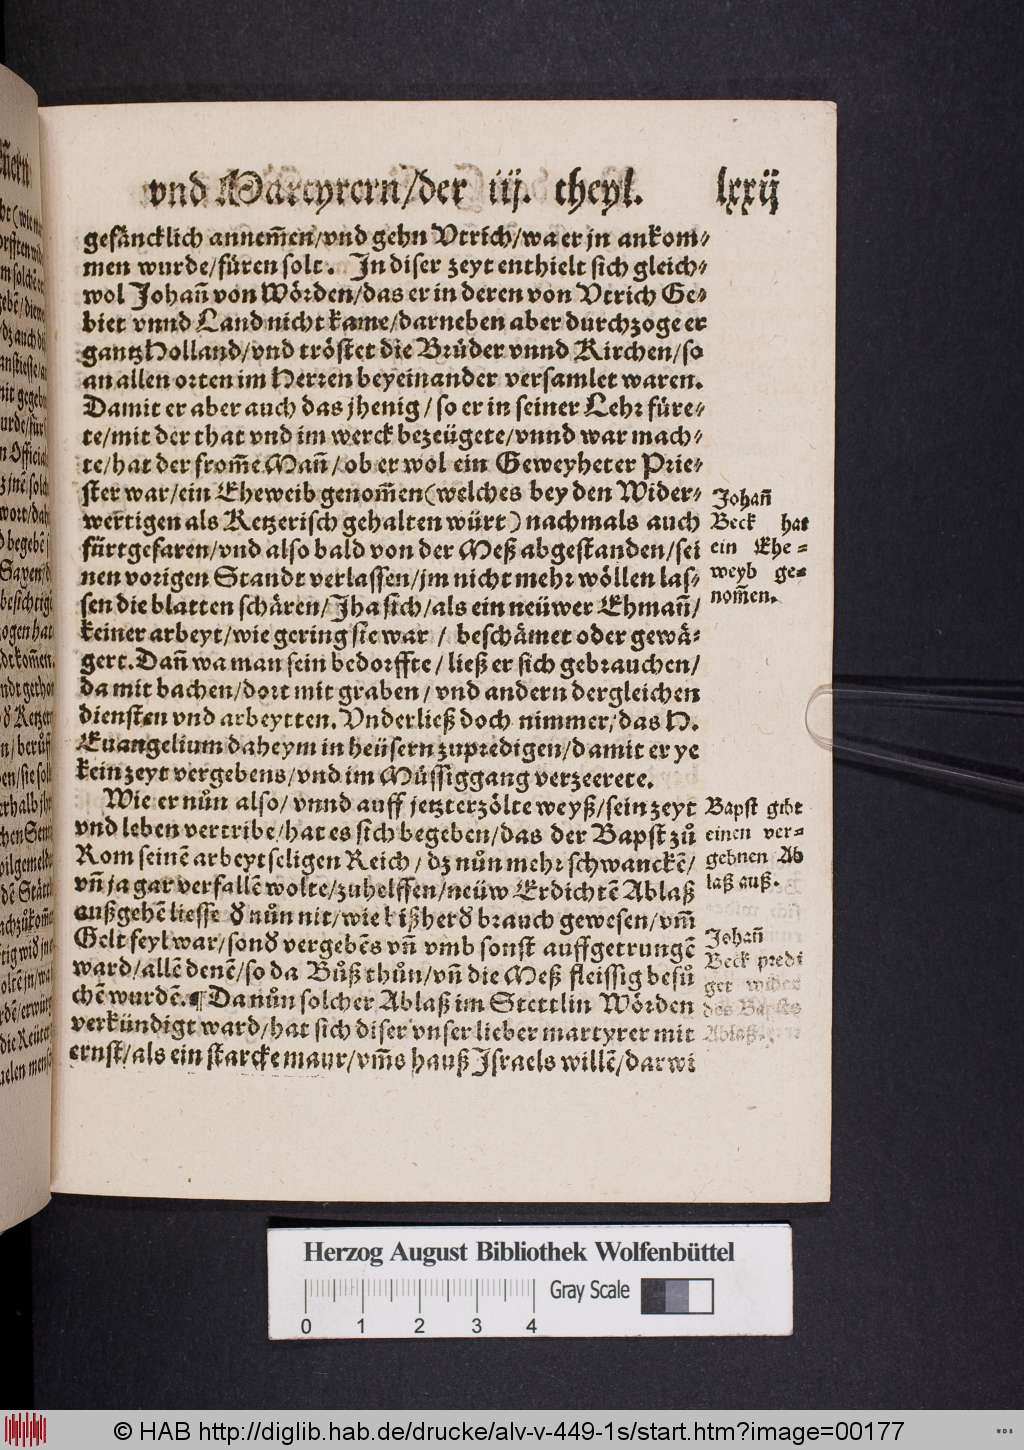 vnd Martyrern/der iij. theyl. lxxij
gefäncklich annem̃en/vnd gehn Vtrich/wa er jn ankom⸗
men wurde/füren solt. In diser zeyt enthielt sich gleich⸗
wol Johañ von Wörden/das er in deren von Vtrich Ge⸗
biet vnnd Land nicht kame/darneben aber durchzoge er
gantz Holland/vnd tröstet die Brüder vnnd Kirchen/so
an allen orten im Herren beyeinander versamlet waren.
Damit er aber auch das jhenig/so er in seiner Lehr füre⸗
te/mit der that vnd im werck bezeügete/vnnd war mach⸗
te/hat der from̃e Mañ/ob er wol ein Geweyheter Prie⸗
ster war/ein Eheweib genom̃en(welches bey den Wider⸗
wertigen als Ketzerisch gehalten würt) nachmals auch
fürtgefaren/vnd also bald von der Meß abgestanden/sei
nen vorigen Standt verlassen/jm nicht mehr wöllen las⸗
sen die blatten schären/Jha sich/als ein neüwer Ehmañ/
keiner arbeyt/wie gering sie war/beschämet oder gewä⸗
gert. Dañ wa man sein bedorffte/ließ er sich gebrauchen/
da mit bachen/dort mit graben/vnd andern dergleichen
diensten vnd arbeytten. Vnderließ doch nimmer/das H.
Euangelium daheym in heüsern zupredigen/damit er ye
kein zeyt vergebens/vnd im Müssiggang verzeerete.
Johañ
Beck hat
ein Ehe⸗
weyb ge⸗
nom̃en.
Wie er nůn also/vnnd auff jetzterzölte weyß/sein zeyt
vnd leben vertribe/hat es sich begeben/das der Bapst zů
Rom seinẽ arbeytseligen Reich/dz nůn mehr schwanckẽ/
vñ ja gar verfallẽ wolte/zuhelffen/neüw Erdichtẽ Ablaß
außgehẽ liesse ď nůn nit/wie bißherď brauch gewesen/vm̃
Gelt feyl war/sonď vergebẽs vñ vmb sonst auffgetrungẽ
ward/allẽ denẽ/so da Bůß thůn/vñ die Meß fleissig besů
chẽ wurdẽ. ¶ Da nůn solcher Ablaß im Stettlin Wörden
verkündigt ward/hat sich diser vnser lieber martyrer mit
ernst/als ein starcke maur/vm̃s hauß Israels willẽ/darwi
Bapst gibt
einen ver⸗
gebnen Ab
laß auß.
Johañ
Beck predi
get wider
des Bapsts
Ablaß.
Herzog August Bibliothek Wolfenbüttel
0 1 2 3 4 Gray Scale
© HAB http://diglib.hab.de/drucke/alv-v-449-1s/start.htm?image=00177